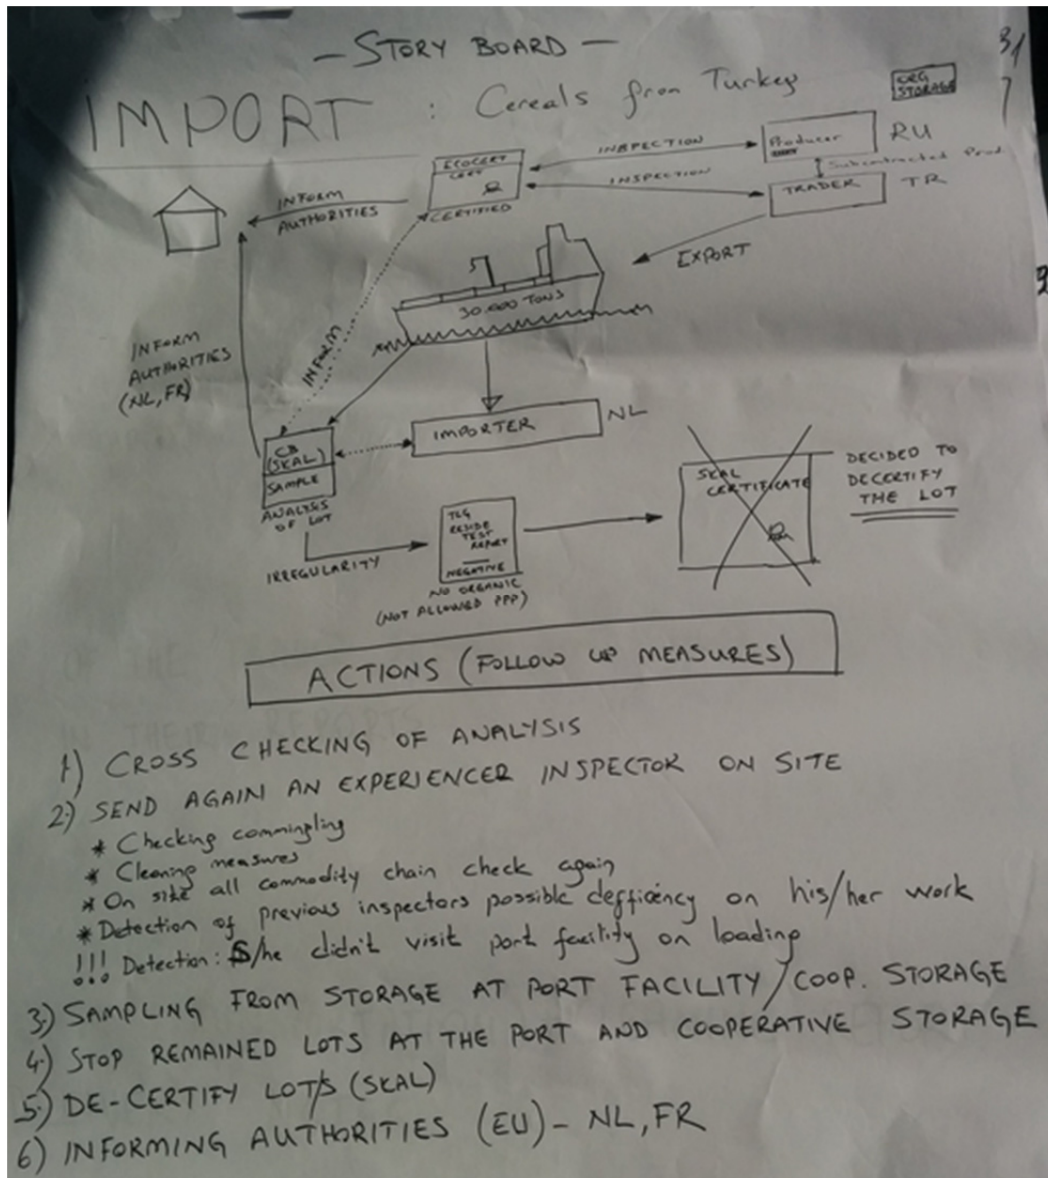 — STORY BOARD —
31
IMPORT : Cereals from Turkey
ORG
STORAGE
7
ECOCERT
CERT
CERTIFIED
INSPECTION
INSPECTION
Producer
RU
Subcontracted Prod.
TRADER
TR
INFORM
AUTHORITIES
EXPORT
30.000 TONS
INFORM
AUTHORITIES
(NL, FR)
INFORM
IMPORTER
NL
CB
(SKAL)
SAMPLE
ANALYSIS
OF LOT
IRREGULARITY
TLG
RESIDE
TEST
REPORT
NEGATIVE
NO ORGANIC
(NOT ALLOWED PPP)
SKAL
CERTIFICATE
DECIDED TO
DECERTIFY
THE LOT
ACTIONS (FOLLOW UP MEASURES)
1) CROSS CHECKING OF ANALYSIS
2) SEND AGAIN AN EXPERIENCER INSPECTOR ON SITE
* Checking commingling
* Cleaning measures
* On site all commodity chain check again
* Detection of previous inspectors possible defficency on his/her work
!!! Detection: S/he didn't visit port facility on loading
3) SAMPLING FROM STORAGE AT PORT FACILITY/COOP. STORAGE
4) STOP REMAINED LOTS AT THE PORT AND COOPERATIVE STORAGE
5) DE-CERTIFY LOT/S (SKAL)
6) INFORMING AUTHORITIES (EU) - NL, FR